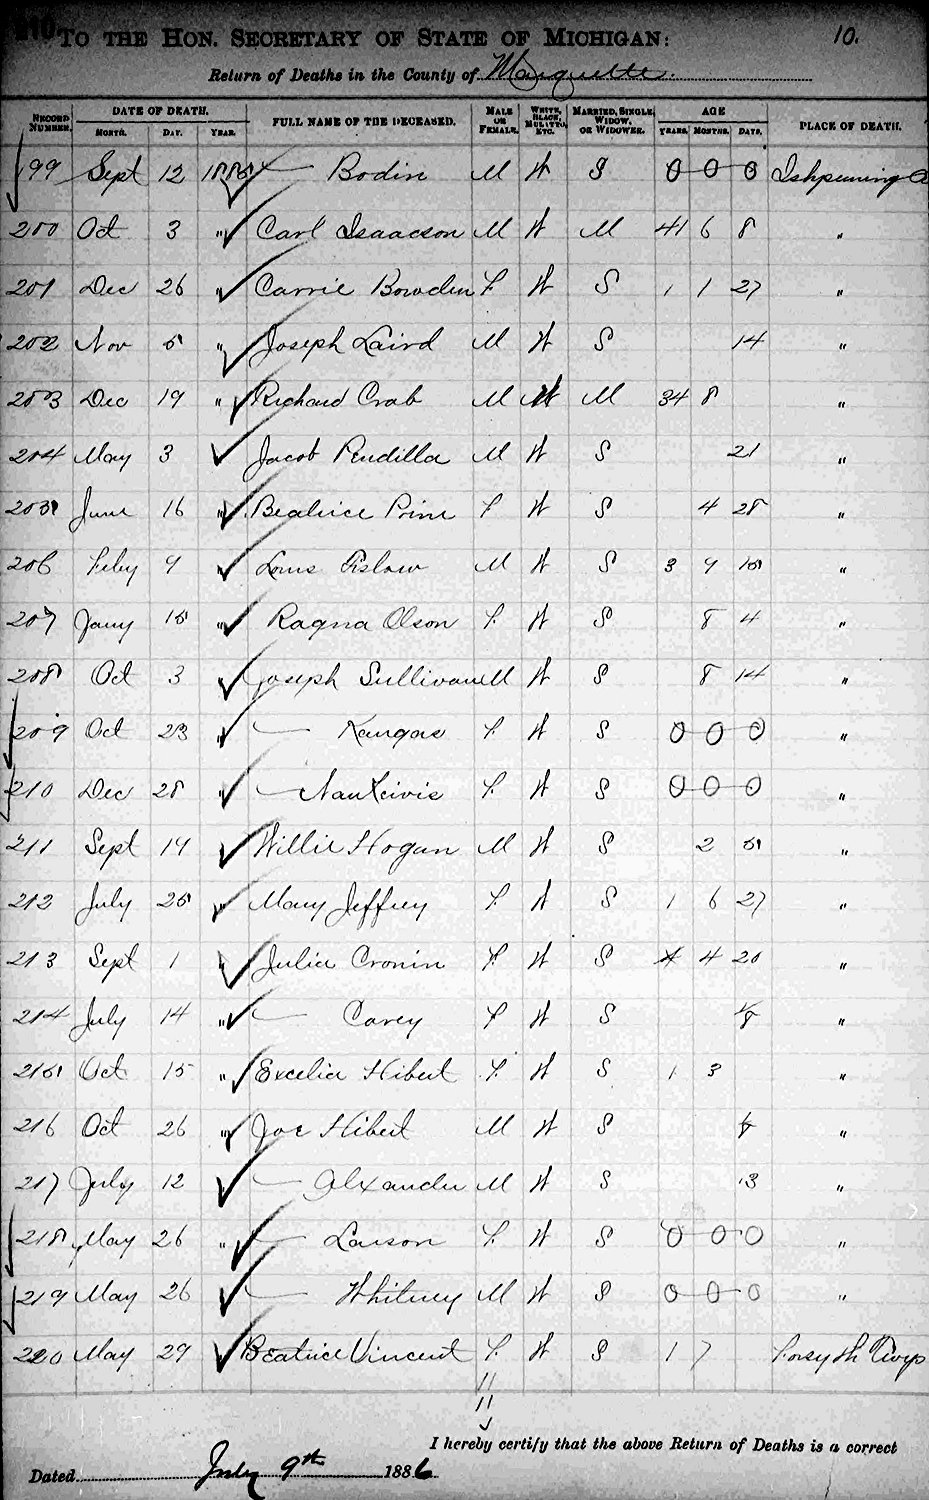 210.
TO THE HON. SECRETARY OF STATE OF MICHIGAN: 10.
Return of Deaths in the County of Marquette.
RECORD NUMBER. DATE OF DEATH. MONTH. DAY. YEAR. FULL NAME OF THE DECEASED. MALE OR FEMALE. WHITE, BLACK, MULATTO, ETC. MARRIED, SINGLE, WIDOW, OR WIDOWER. AGE YEARS. MONTHS. DAYS. PLACE OF DEATH.
199 Sept 12 1885 — Bodin M W S 0 0 0 Ishpeming
200 Oct 3 " Carl Isaacson M W M 41 6 8 "
201 Dec 26 " Carrie Bowden F W S 1 1 27 "
202 Nov 5 " Joseph Laird M W S 14 "
203 Dec 19 " Richard Crab M W M 34 8 "
204 May 3 " Jacob M W S 21 "
205 June 16 " Beatrice Prim F W S 4 28 "
206 Feby 9 " Louis M W S 3 9 15 "
207 Jany 15 " Ragna Olson F W S 8 4 "
208 Oct 3 " Joseph Sullivan M W S 8 14 "
209 Oct 23 " — Kangas F W S 0 0 0 "
210 Dec 28 " — Nankivis F W S 0 0 0 "
211 Sept 14 " Willie Hogan M W S 2 5 "
212 July 25 " Mary Jeffrey F W S 1 6 27 "
213 Sept 1 " Julia Cronin F W S 4 4 20 "
214 July 14 " — Carey F W S "
215 Oct 15 " Excelia Hibert F W S 1 3 "
216 Oct 26 " Joe Hibert M W S "
217 July 12 " — Alexander M W S 13 "
218 May 26 " — Larson F W S 0 0 0 "
219 May 26 " — Whitney M W S 0 0 0 "
220 May 29 " Beatrice Vincent F W S 1 7 Forsyth Twp
I hereby certify that the above Return of Deaths is a correct
Dated July 9th 1886